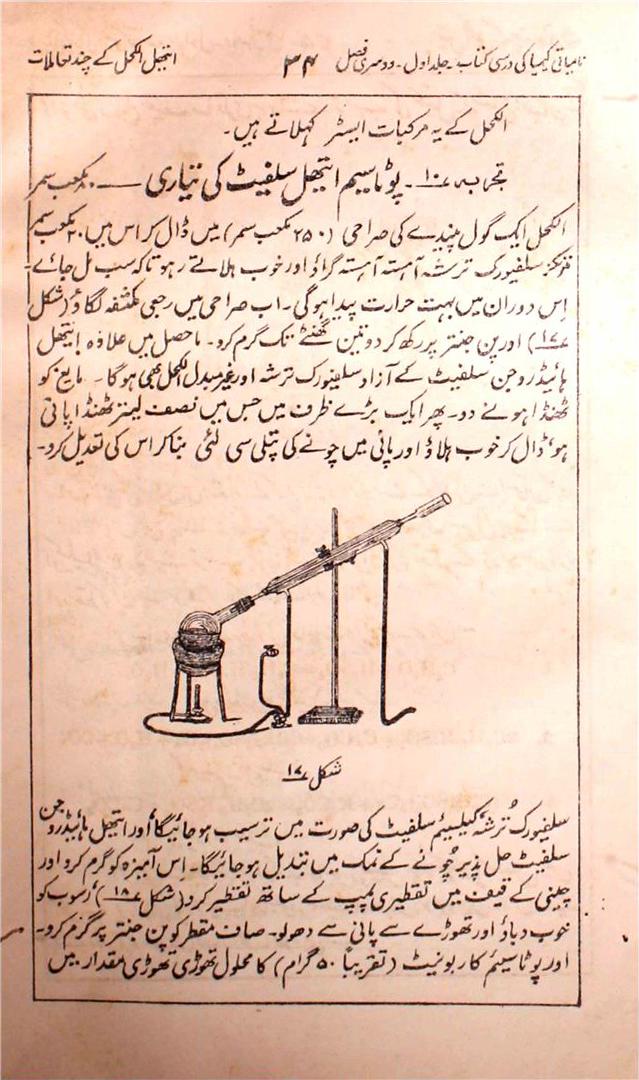 نامیاتی کیمیا کی درسی کتاب۔ جلد اول۔ دوسری فصل ۳۴ ایتھل الکحل کے چند تعاملات
الکحل کے یہ مرکبات ایسٹر کہلاتے ہیں۔
تجربہ ۱۰۔ پوٹاسیم ایتھل سلفیٹ کی تیاری — ۸۰ مکعب سمر
الکحل ایک گول پیندے کی صراحی (۲۵۰ مکعب سمر) میں ڈال کر اس میں ۲۰ مکعب سمر
مرتکز سلفیورک ترشہ آہستہ آہستہ گراؤ اور خوب ہلاتے رہو تاکہ سب مل جائے۔
اِس دوران میں بہت حرارت پیدا ہوگی۔ اب صراحی میں رجعی مکثفہ لگاؤ (شکل
۱۷) اور پن جنتر پر رکھ کر دو تین گھنٹے تک گرم کرو۔ ماحصل میں علاوہ ایتھل
ہائیڈروجن سلفیٹ کے آزاد سلفیورک ترشہ اور غیر مبدل الکحل بھی ہوگا۔ مایع کو
ٹھنڈا ہونے دو۔ پھر ایک بڑے ظرف میں جس میں نصف لیٹر ٹھنڈا پانی
ہو، ڈال کر خوب ہلاؤ اور پانی میں چونے کی پتلی سی لئی بنا کر اس کی تعدیل کرو۔
شکل ۱۷
سلفیورک تُرشہ کیلسیئم سلفیٹ کی صورت میں ترسیب ہو جائیگا اور ایتھل ہائیڈروجن
سلفیٹ حل پذیر چُونے کے نمک میں تبدیل ہو جائیگا۔ اِس آمیزہ کو گرم کرو اور
چینی کے قیف میں تقطیری پمپ کے ساتھ تقطیر کرو (شکل ۱۸) رسوب کو
خوب دباؤ اور تھوڑے سے پانی سے دھولو۔ صاف مقطر کو پن جنتر پر گرم کرو۔
اور پوٹاسیئم کاربونیٹ (تقریباً ۵۰ گرام) کا محلول تھوڑی تھوڑی مقدار میں